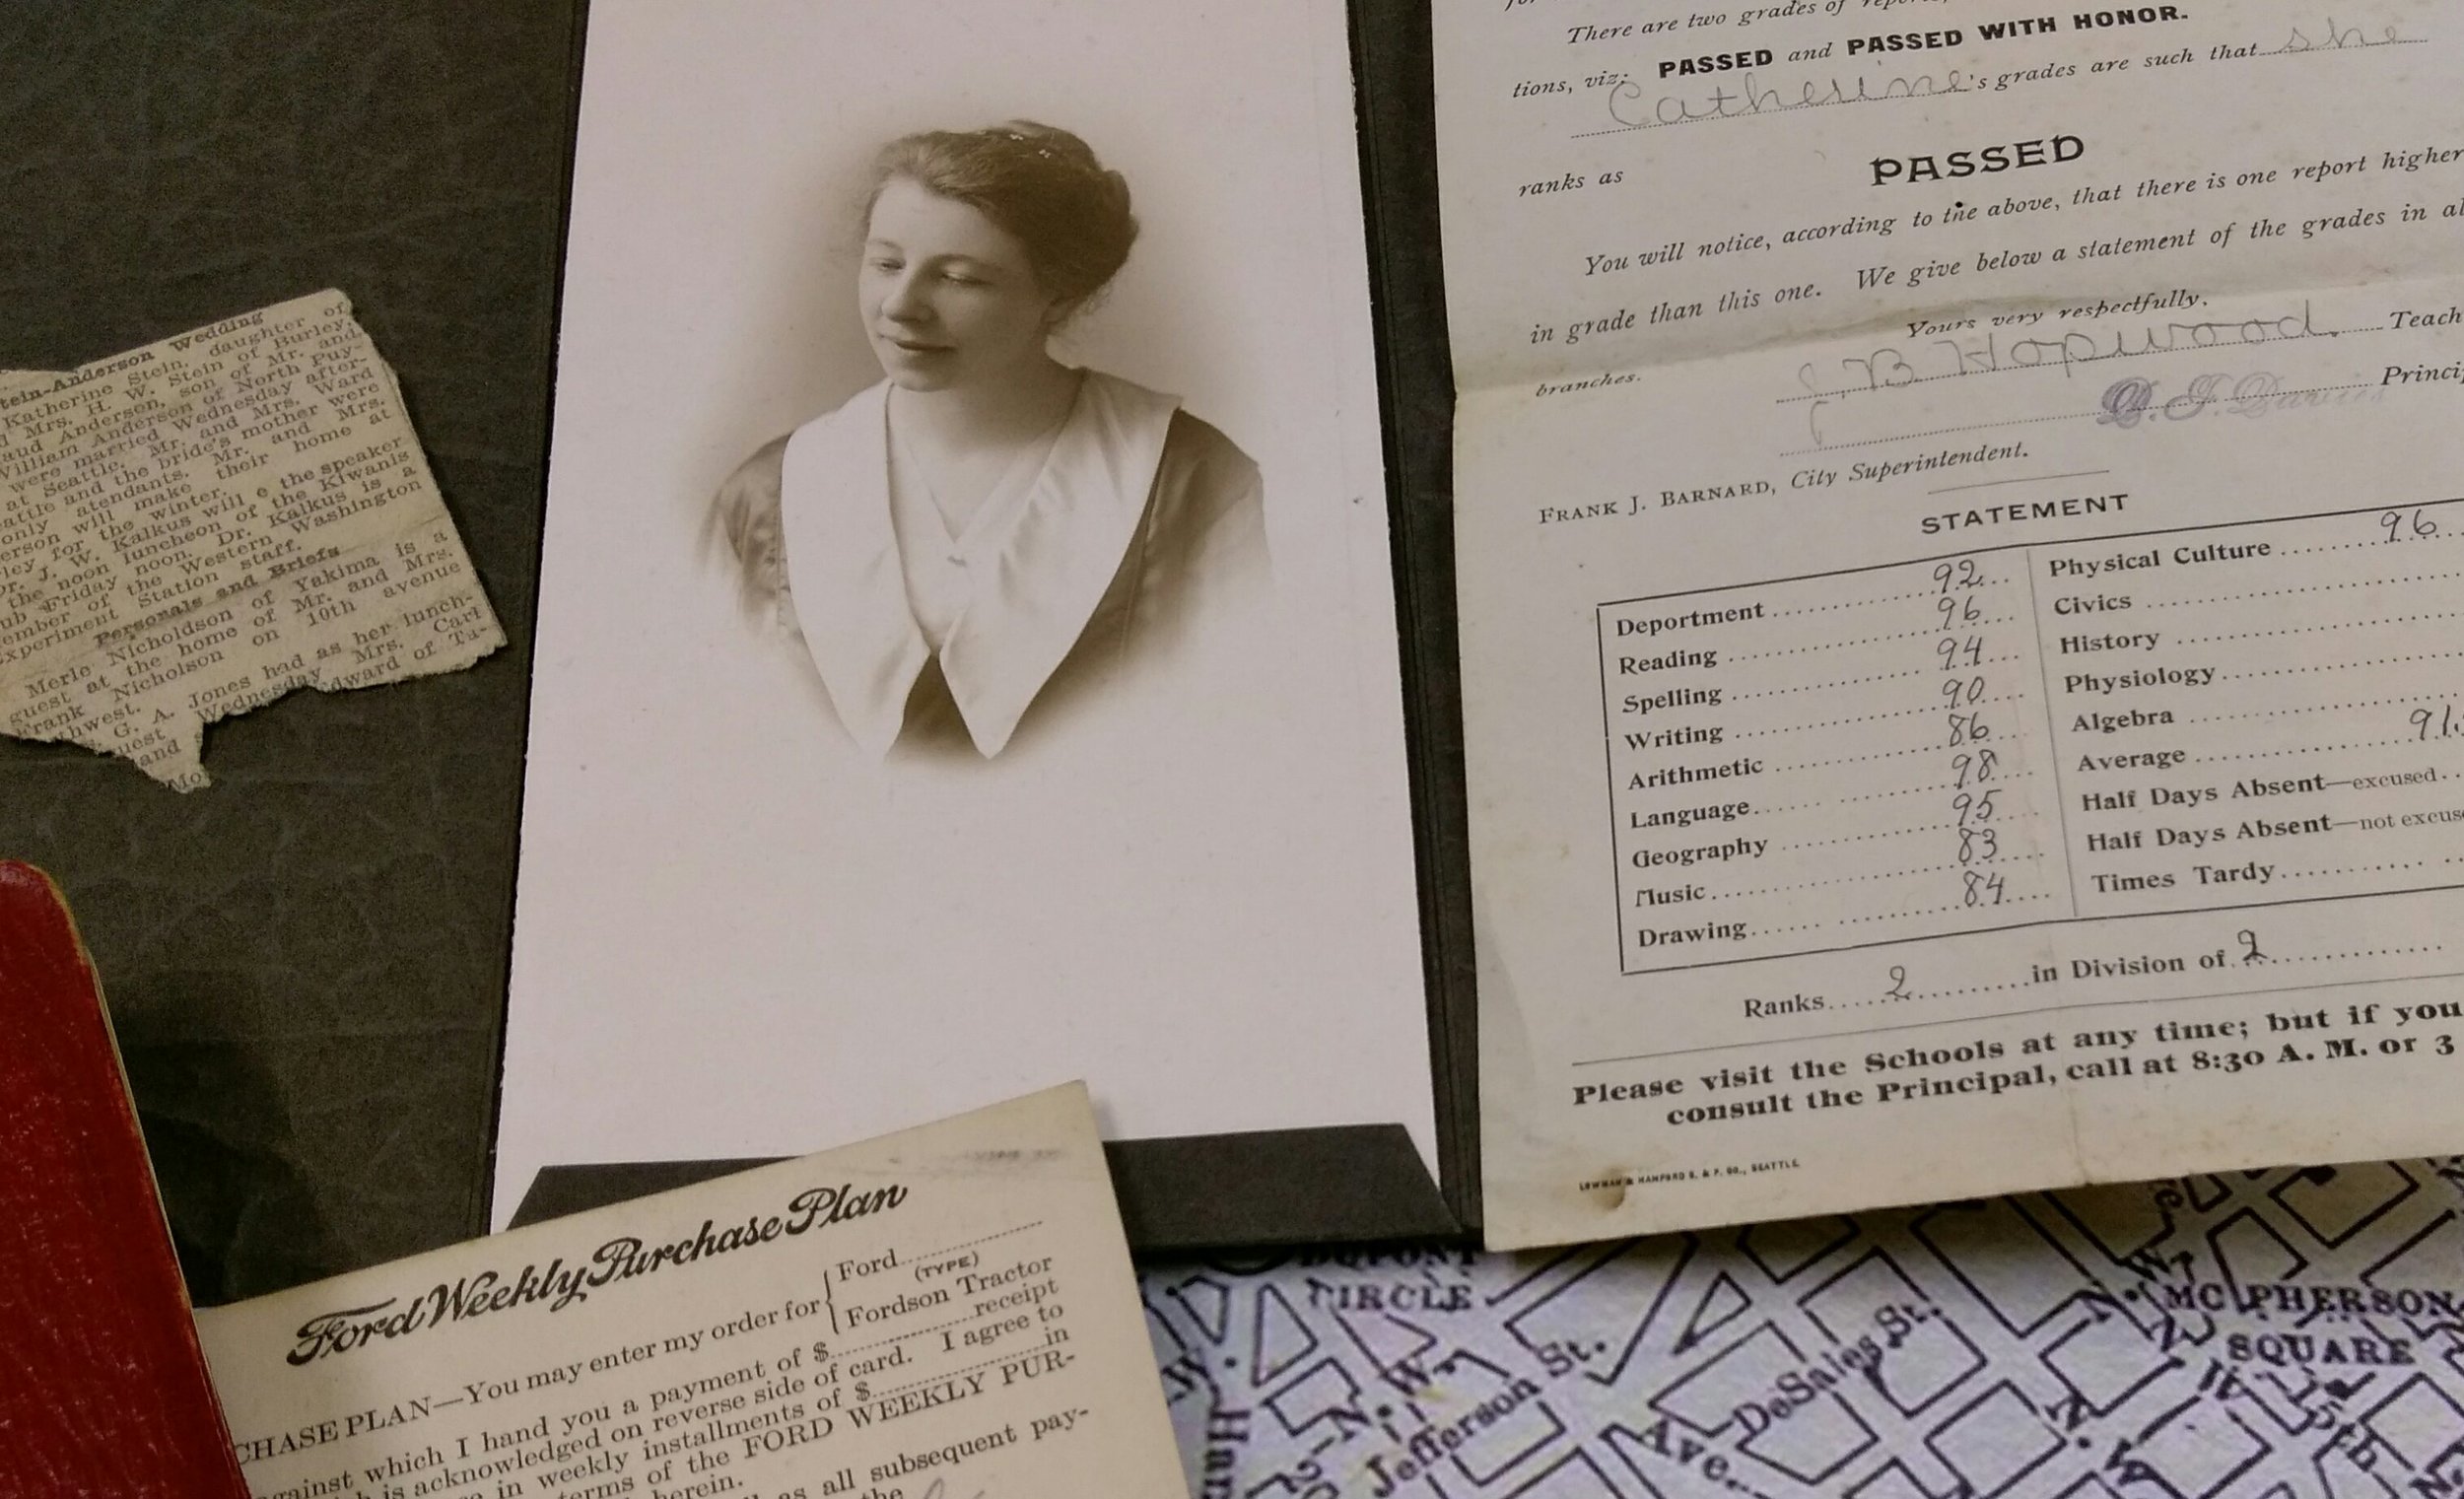 tein-Anderson Wedding
Katherine Stein, daughter of
d Mrs. H. W. Stein of Burley,
aud Anderson, son of Mr. and
William Anderson of North Puy-
were married Wednesday after-
at Seattle. Mr. and Mrs. Ward
eattle and the bride's mother were
only atendants. Mr. and Mrs.
erson will make their home at
ley for the winter.
Dr. J. W. Kalkus will e the speaker
the noon luncheon of the Kiwanis
ub Friday noon. Dr. Kalkus is a
ember of the Western Washington
xperiment Station staff.
Personals and Briefs
Merle Nicholdson of Yakima is a
guest at the home of Mr. and Mrs.
Frank Nicholson on 10th avenue
thwest.
G. A. Jones had as her lunch-
uest Wednesday Mrs. Carl
and Edward of Ta-
Mo
There are two grades of
tions, viz: PASSED and PASSED WITH HONOR.
Catherine's grades are such that she
ranks as
PASSED
You will notice, according to the above, that there is one report higher
in grade than this one. We give below a statement of the grades in al
branches.
Yours very respectfully.
J. B. Hopwood. Teach
Princi
FRANK J. BARNARD, City Superintendent.
STATEMENT
Deportment 92
Reading 96
Spelling 94
Writing 90
Arithmetic 86
Language 98
Geography 95
Music 83
Drawing 84
Physical Culture 96
Civics
History
Physiology
Algebra
Average 91
Half Days Absent—excused
Half Days Absent—not excuse
Times Tardy
Ranks 2 in Division of 2
Please visit the Schools at any time; but if you
consult the Principal, call at 8:30 A. M. or 3
LOWMAN & HANFORD S. & P. CO., SEATTLE.
Ford Weekly Purchase Plan
CHASE PLAN—You may enter my order for
Ford
(TYPE)
Fordson Tractor
against which I hand you a payment of $ receipt
h is acknowledged on reverse side of card. I agree to
e in weekly installments of $ in
terms of the FORD WEEKLY PUR-
herein.
as all subsequent pay-
the
DUPONT
CIRCLE
N. W.
Jefferson St.
DeSales St.
Ave.
MC PHERSON
SQUARE
15th
N. W.